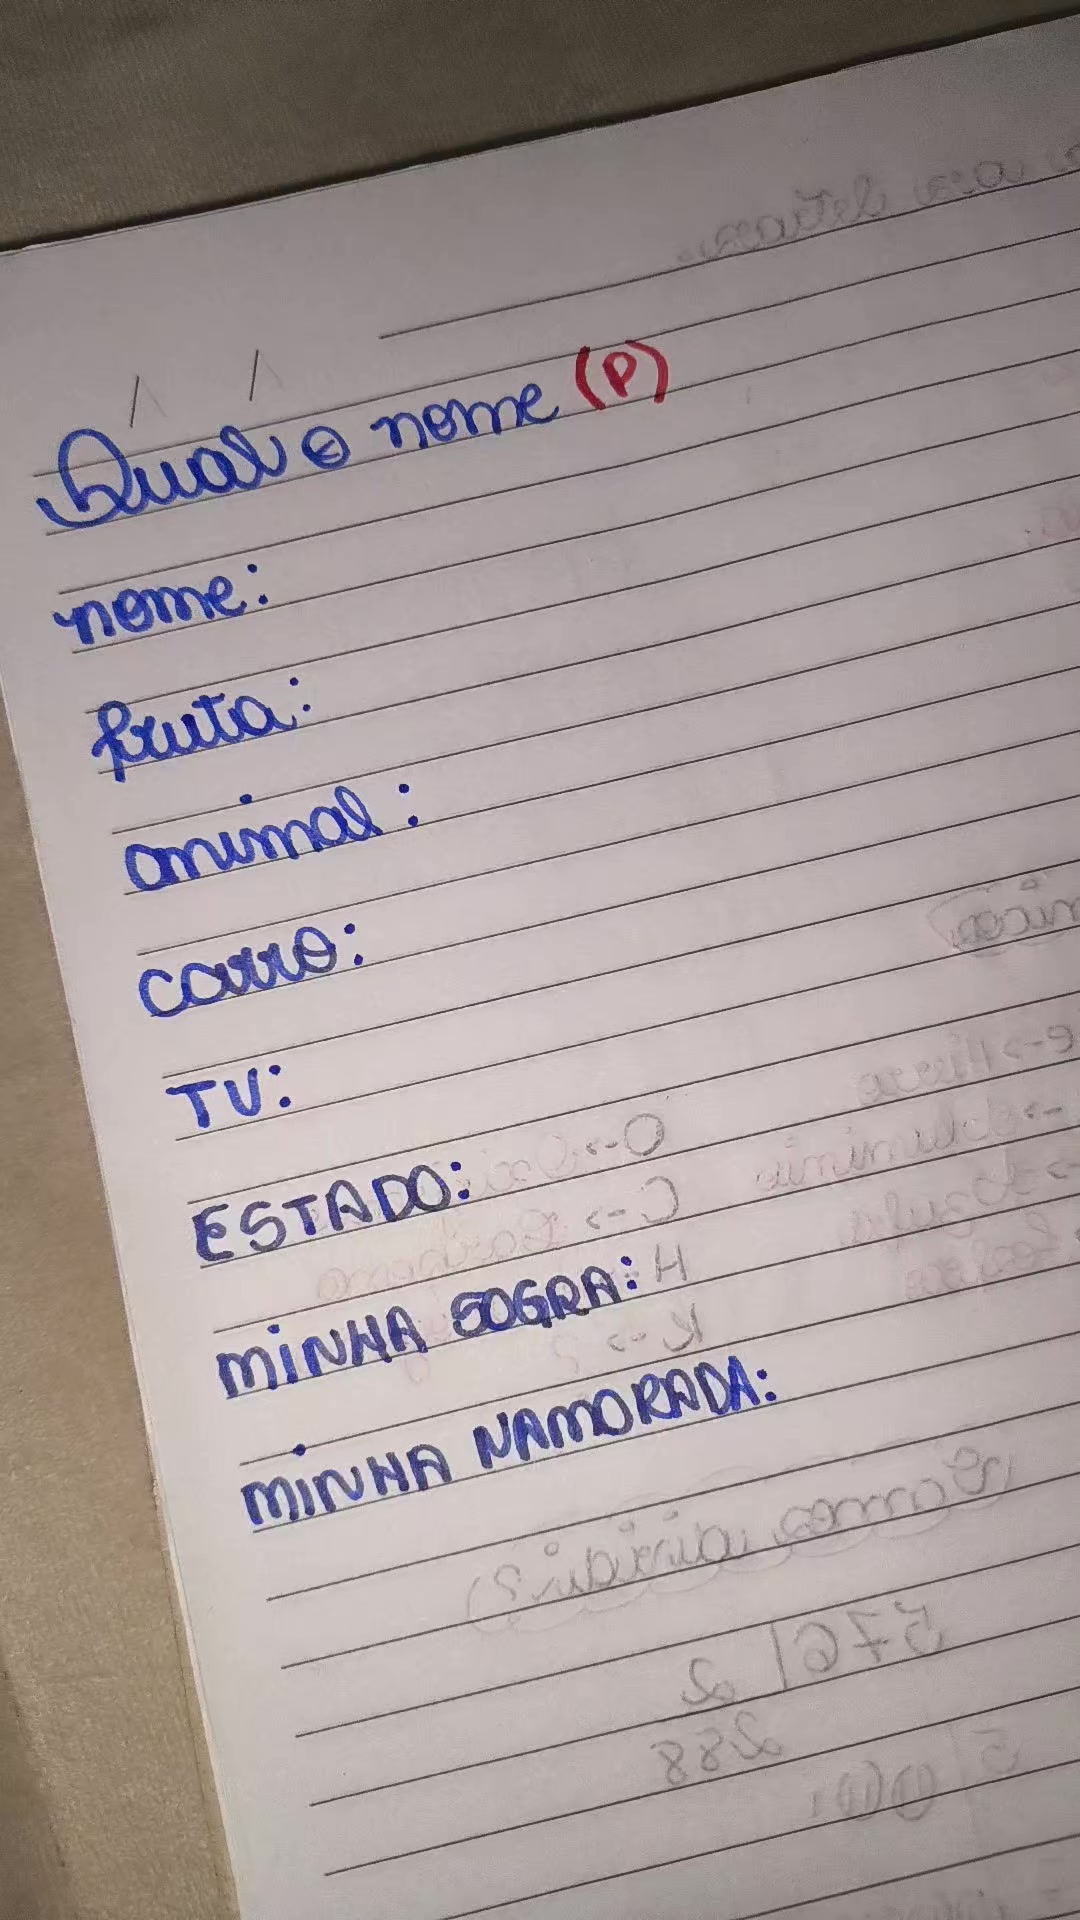 Qual o nome (P)
nome:
fruta:
animal:
carro:
TV:
ESTADO:
MINHA SOGRA:
MINHA NAMORADA: